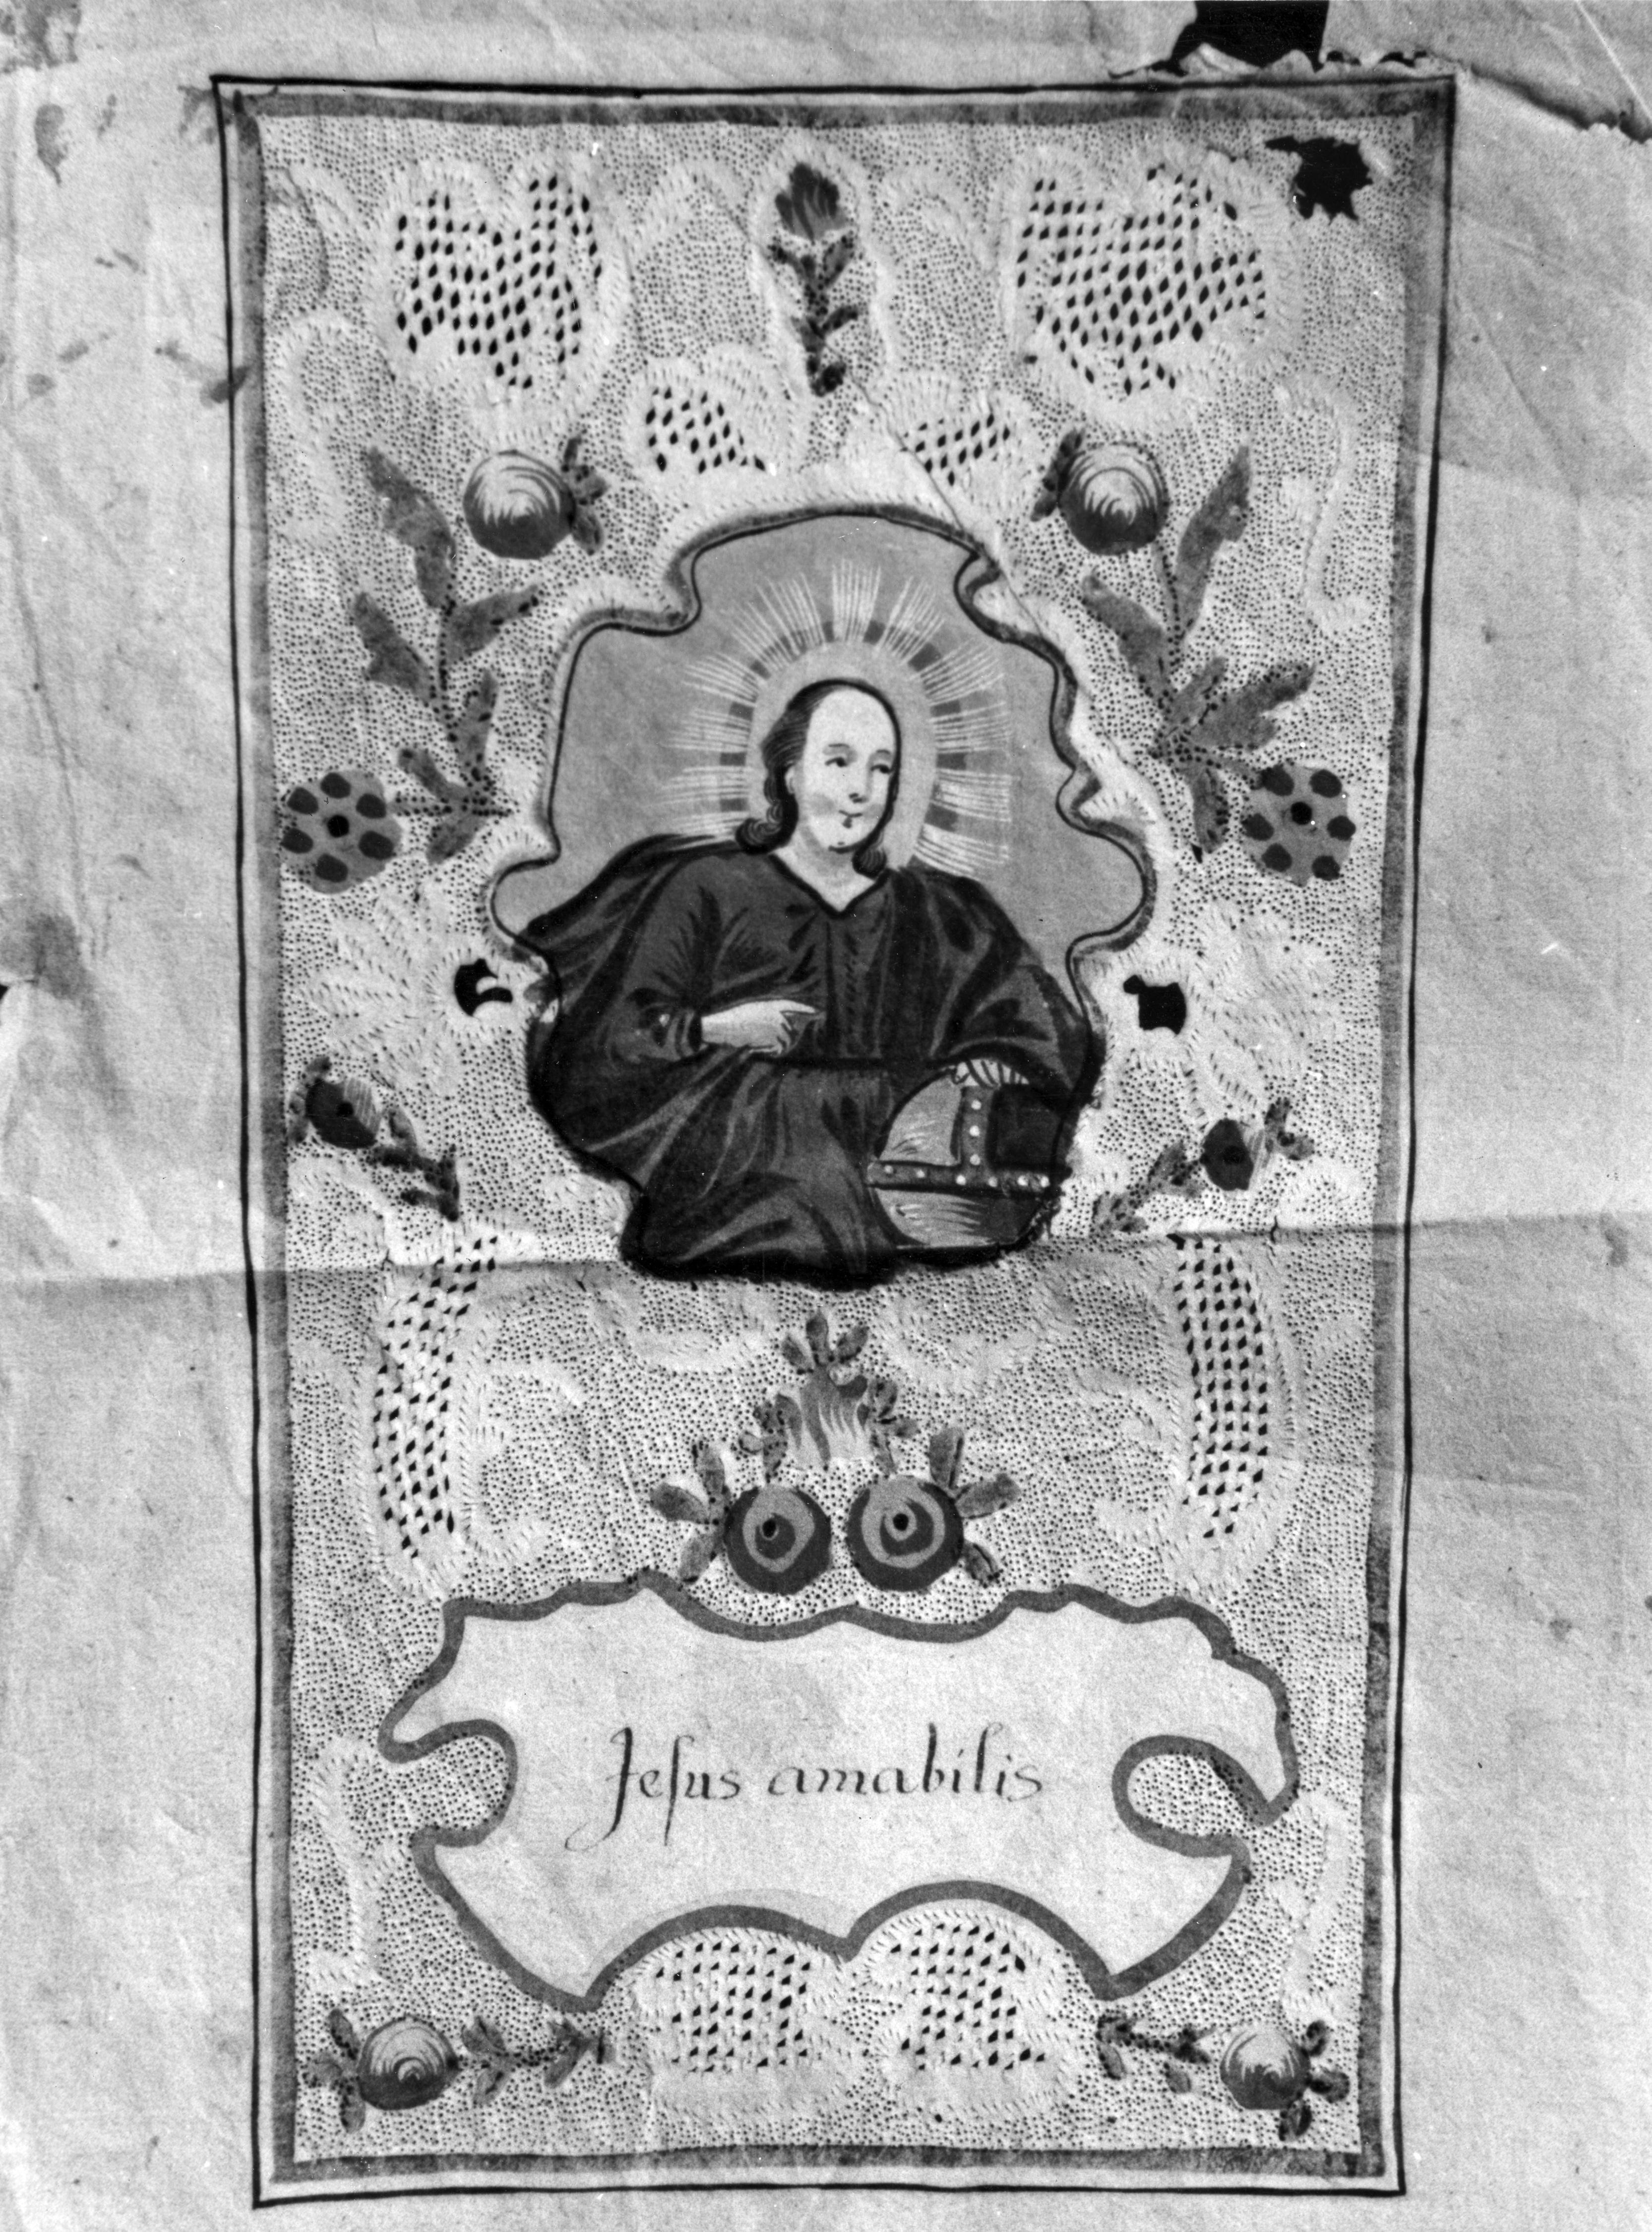 Jeſus amabilis